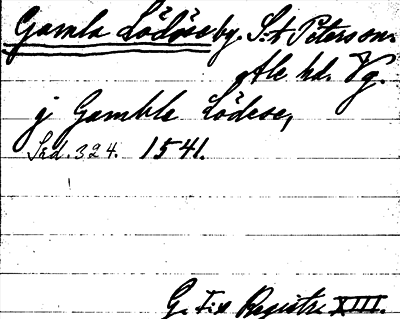 Gamla Lödöse by. S:t Peters sn.
Ale hd. Vg.
j Gamble Lödese,
Skd. 324. 1541.
G. I:s Registr. XIII.